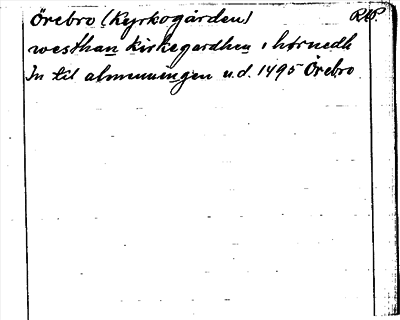 Örebro (Kyrkogården)
westhan kirkegardhen i hørnedh
In til almenningen u.d. 1495 Örebro